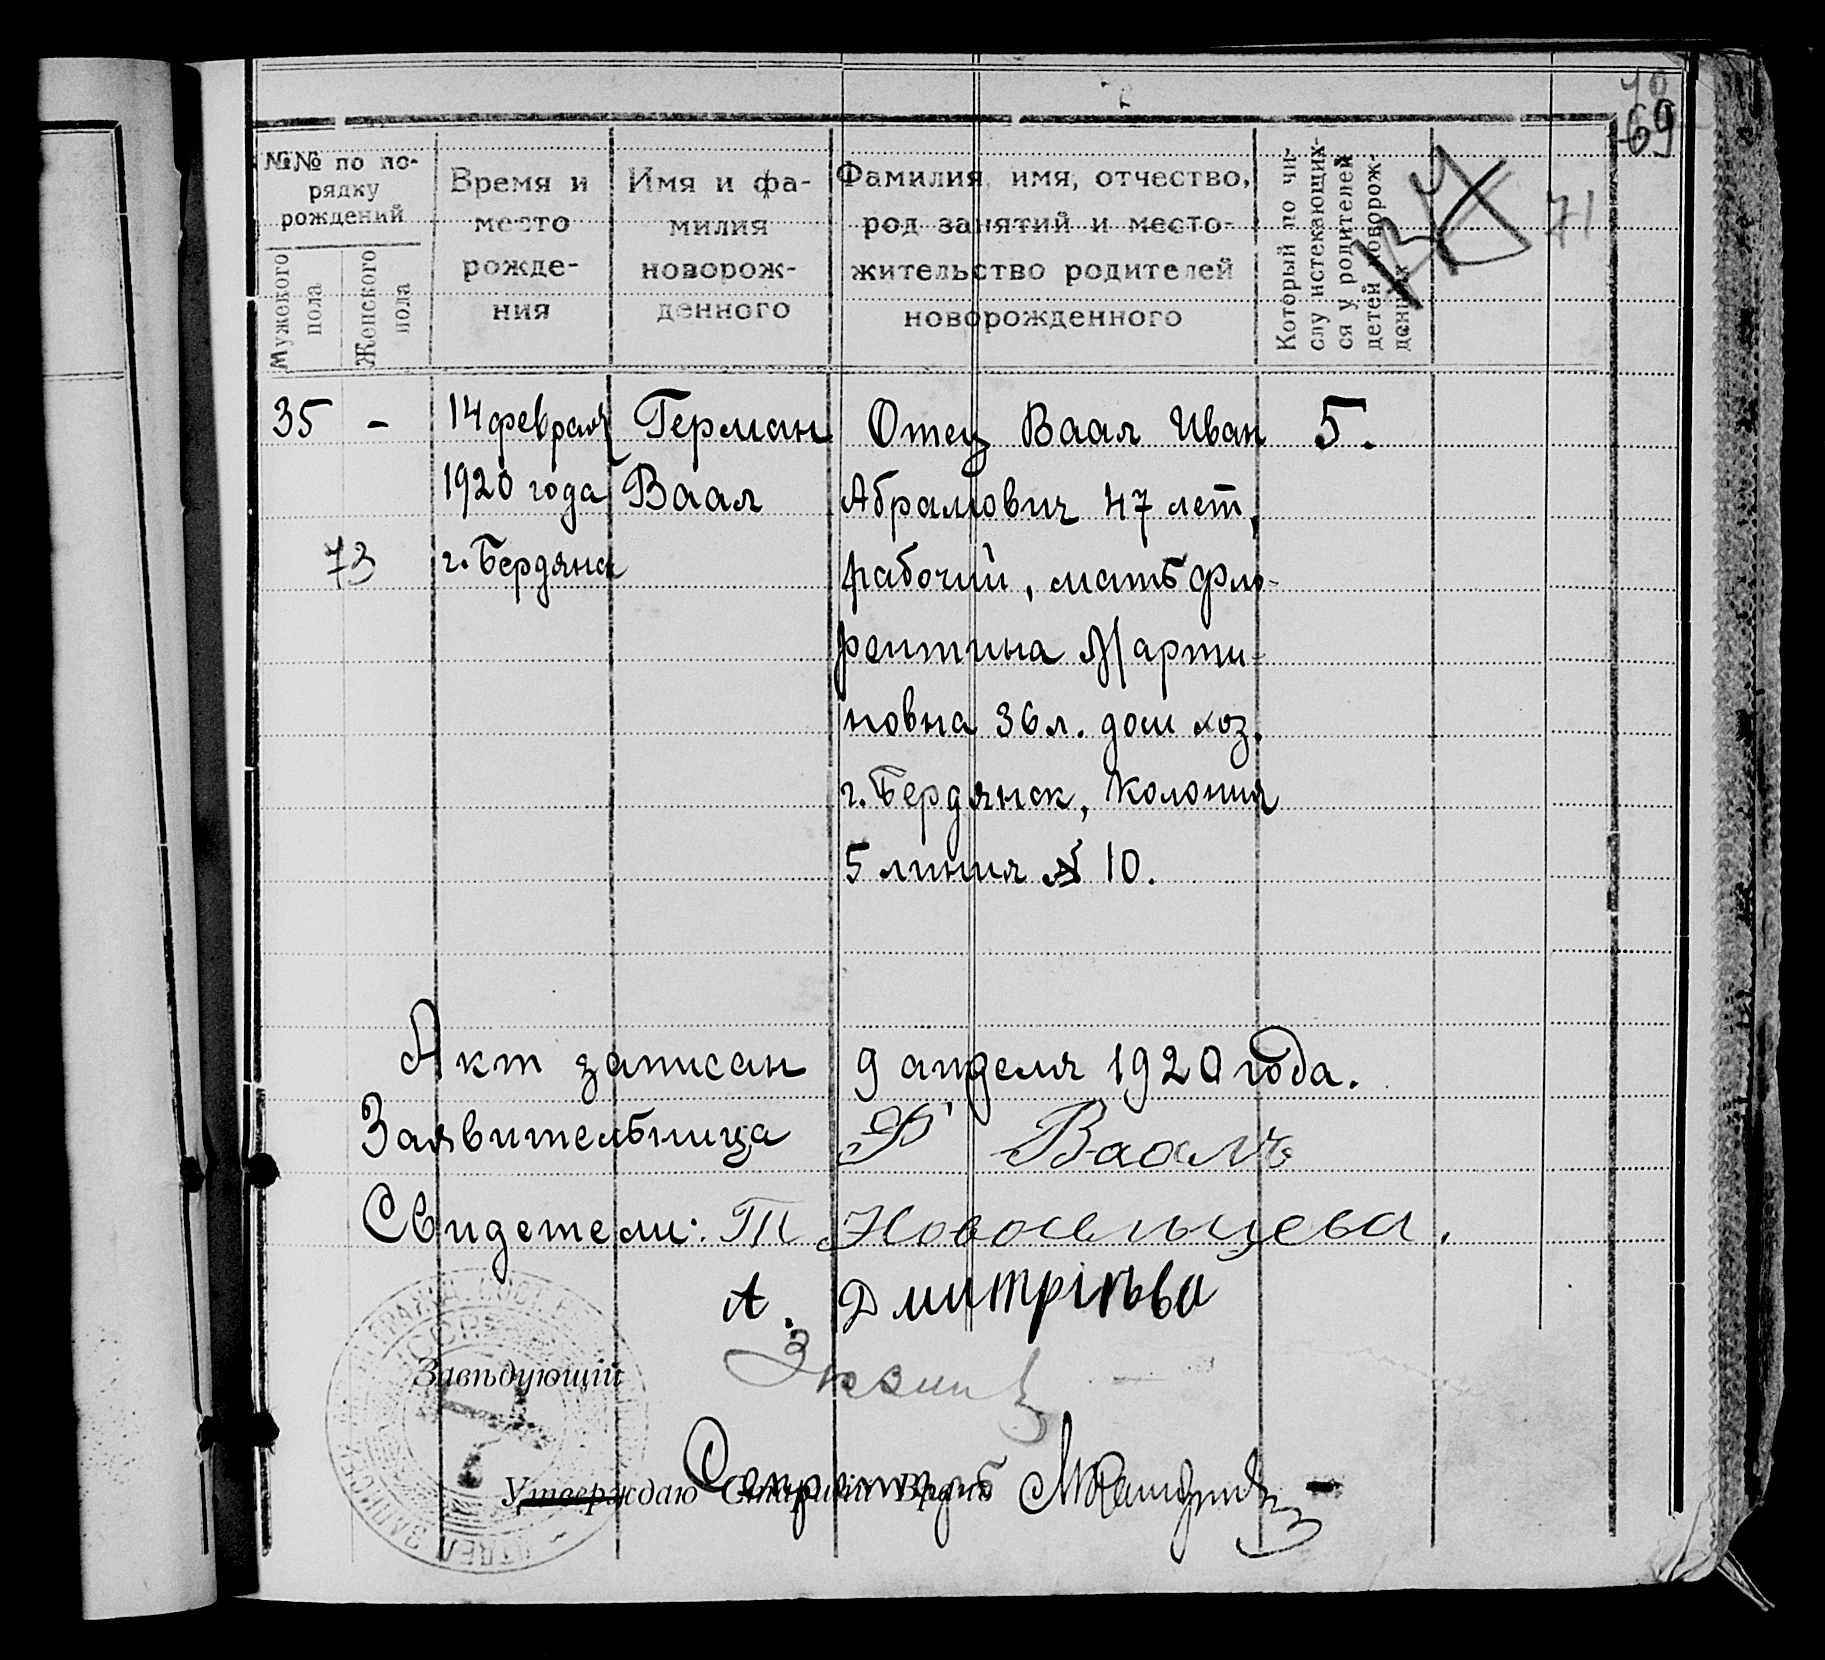 70
69
71
№№ по по-
рядку
рождений
Мужского
пола
Женского
пола
Время и
место
рожде-
ния
Имя и фа-
милия
новорож-
денного
Фамилия, имя, отчество,
род занятий и место-
жительство родителей
новорожденного
Который по чи-
слу истекающих-
ся у родителей
детей новорож-
денный
35 -
73
14 февраля
1920 года
г. Бердянск
Герман
Ваал
Отец Ваал Иван
Абрамович 47 лет,
рабочий, мать Фло-
рентина Марти-
новна 36 л. дом хоз.
г. Бердянск, Колония
5 линия № 10.
5.
Акт записан 9 апреля 1920 года.
Заявительница Ф Ваалъ
Свидетели: Т Новосельцева.
А. Дмитріева
Завѣдующій
Утверждаю Старшій Врачъ
Секретарь